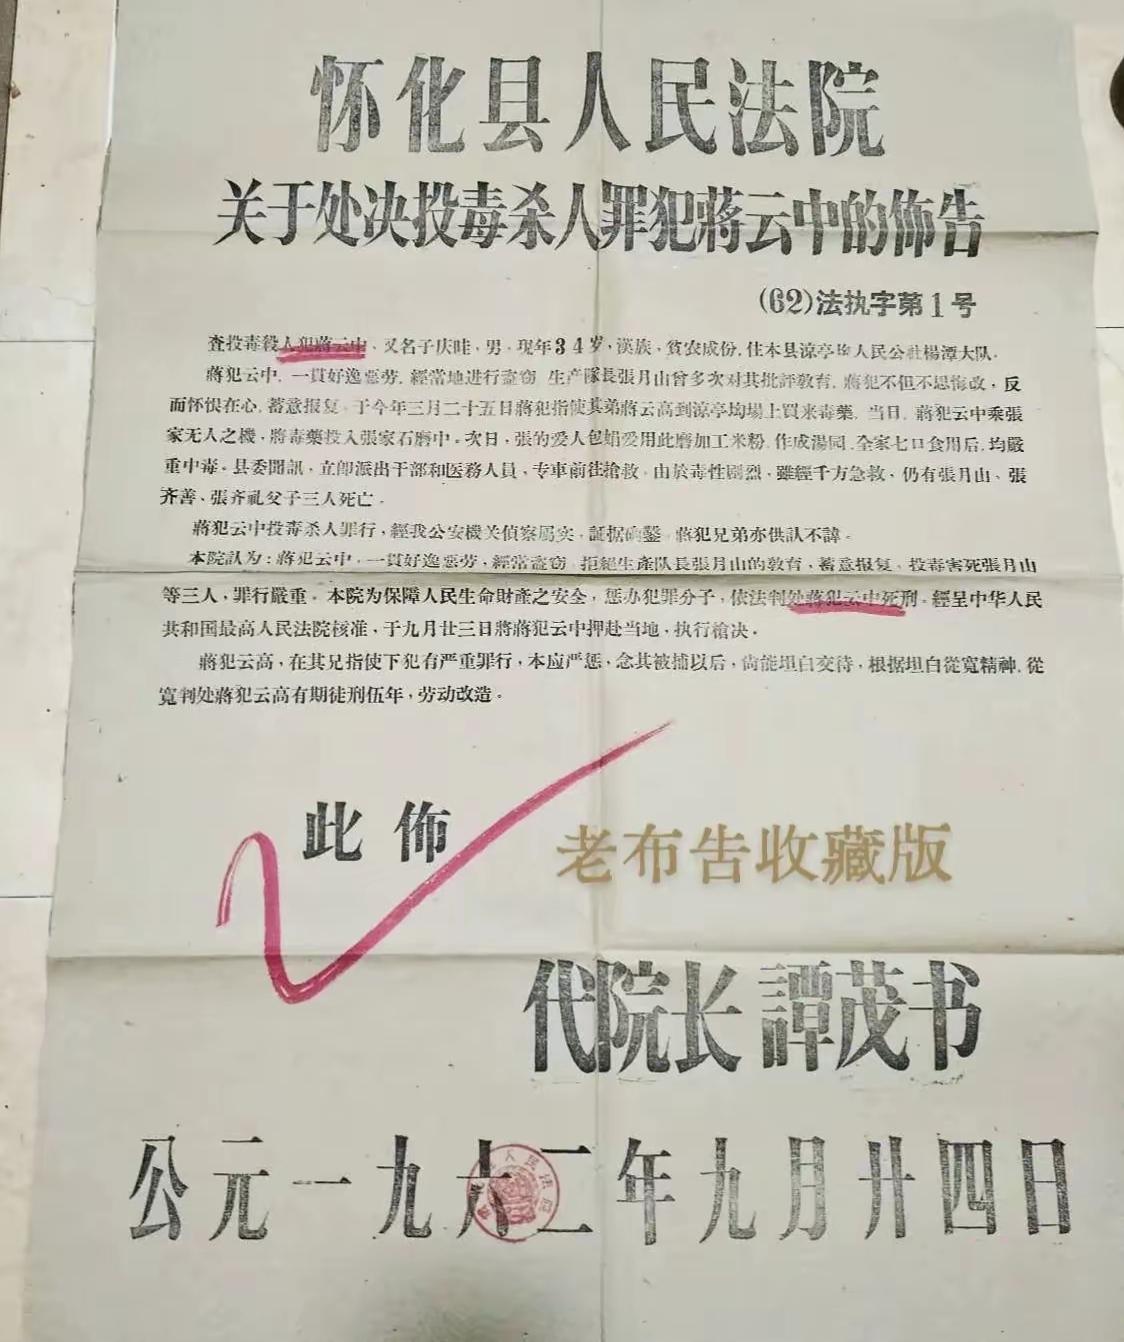 怀化县人民法院
关于处决投毒杀人罪犯蔣云中的佈告
(62)法执字第1号
查投毒殺人犯蔣云中，又名子庆哇，男，現年34岁，漢族，貧农成份，住本县涼亭坳人民公社楊潭大队。
蔣犯云中，一貫好逸惡劳，經常地进行盜窃，生产隊長張月山曾多次对其批評敎育，蔣犯不但不思悔改，反
而怀恨在心，蓄意报复，于今年三月二十五日蔣犯指使其弟蔣云高到涼亭坳場上買来毒藥，当日，蔣犯云中乘張
家无人之機，將毒藥投入張家石磨中。次日，張的爱人包娟爱用此磨加工米粉，作成湯园，全家七口食用后，均嚴
重中毒。县委聞訊，立卽派出干部和医務人員，专車前往搶救，由於毒性剧烈，雖經千方急救，仍有張月山、張
齐善、張齐礼父子三人死亡。
蔣犯云中投毒杀人罪行，經我公安機关偵察属实，証据确鑿，蔣犯兄弟亦供認不諱。
本院認为：蔣犯云中，一貫好逸惡劳，經常盜窃，拒絕生產队長張月山的敎育，蓄意报复，投毒害死張月山
等三人，罪行嚴重。本院为保障人民生命財產之安全，惩办犯罪分子，依法判处蔣犯云中死刑。經呈中华人民
共和国最高人民法院核准，于九月廿三日將蔣犯云中押赴当地，执行槍决。
蔣犯云高，在其兄指使下犯有严重罪行，本应严惩，念其被捕以后，尙能坦白交待，根据坦白從寬精神，從
寬判处蔣犯云高有期徒刑伍年，劳动改造。
此佈
老布告收藏版
代院长 譚茂书
公元一九六二年九月廿四日